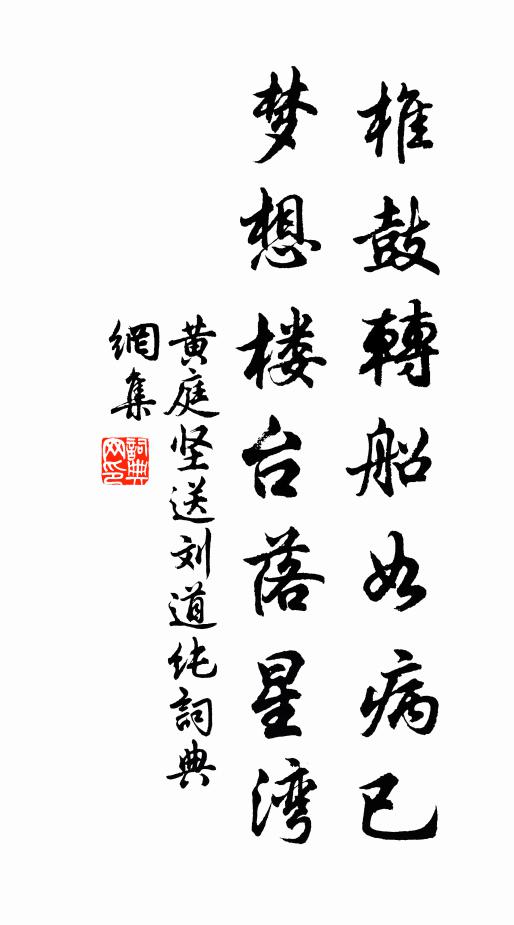 椎鼓轉船如病已
梦想楼台落星湾
黄庭坚送刘道纯詞典
網集
詞典网印